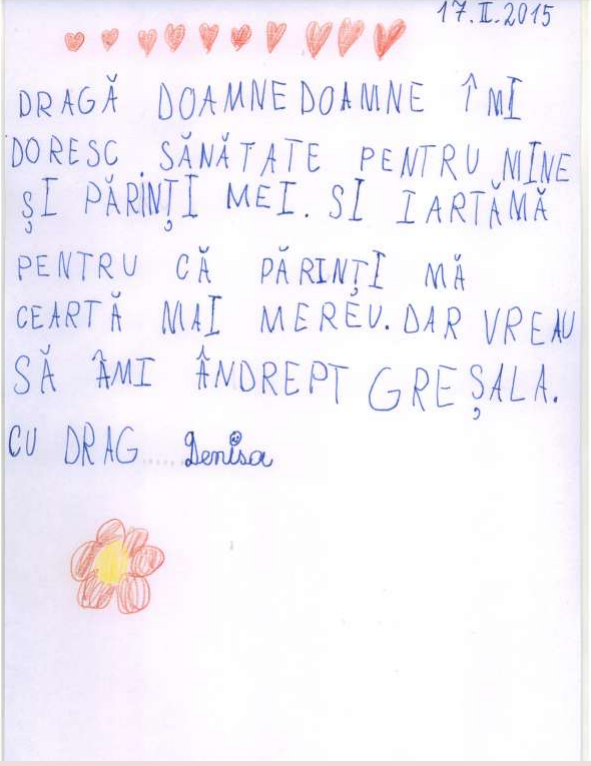 17.II.2015
DRAGĂ DOAMNE DOAMNE ÎMI
DORESC SĂNĂTATE PENTRU MINE
ȘI PĂRINȚI MEI. SI IARTĂMĂ
PENTRU CĂ PĂRINȚI MĂ
CEARTĂ MAI MEREU. DAR VREAU
SĂ ÂMI ÂNDREPT GREȘALA.
CU DRAG ..... Denisa